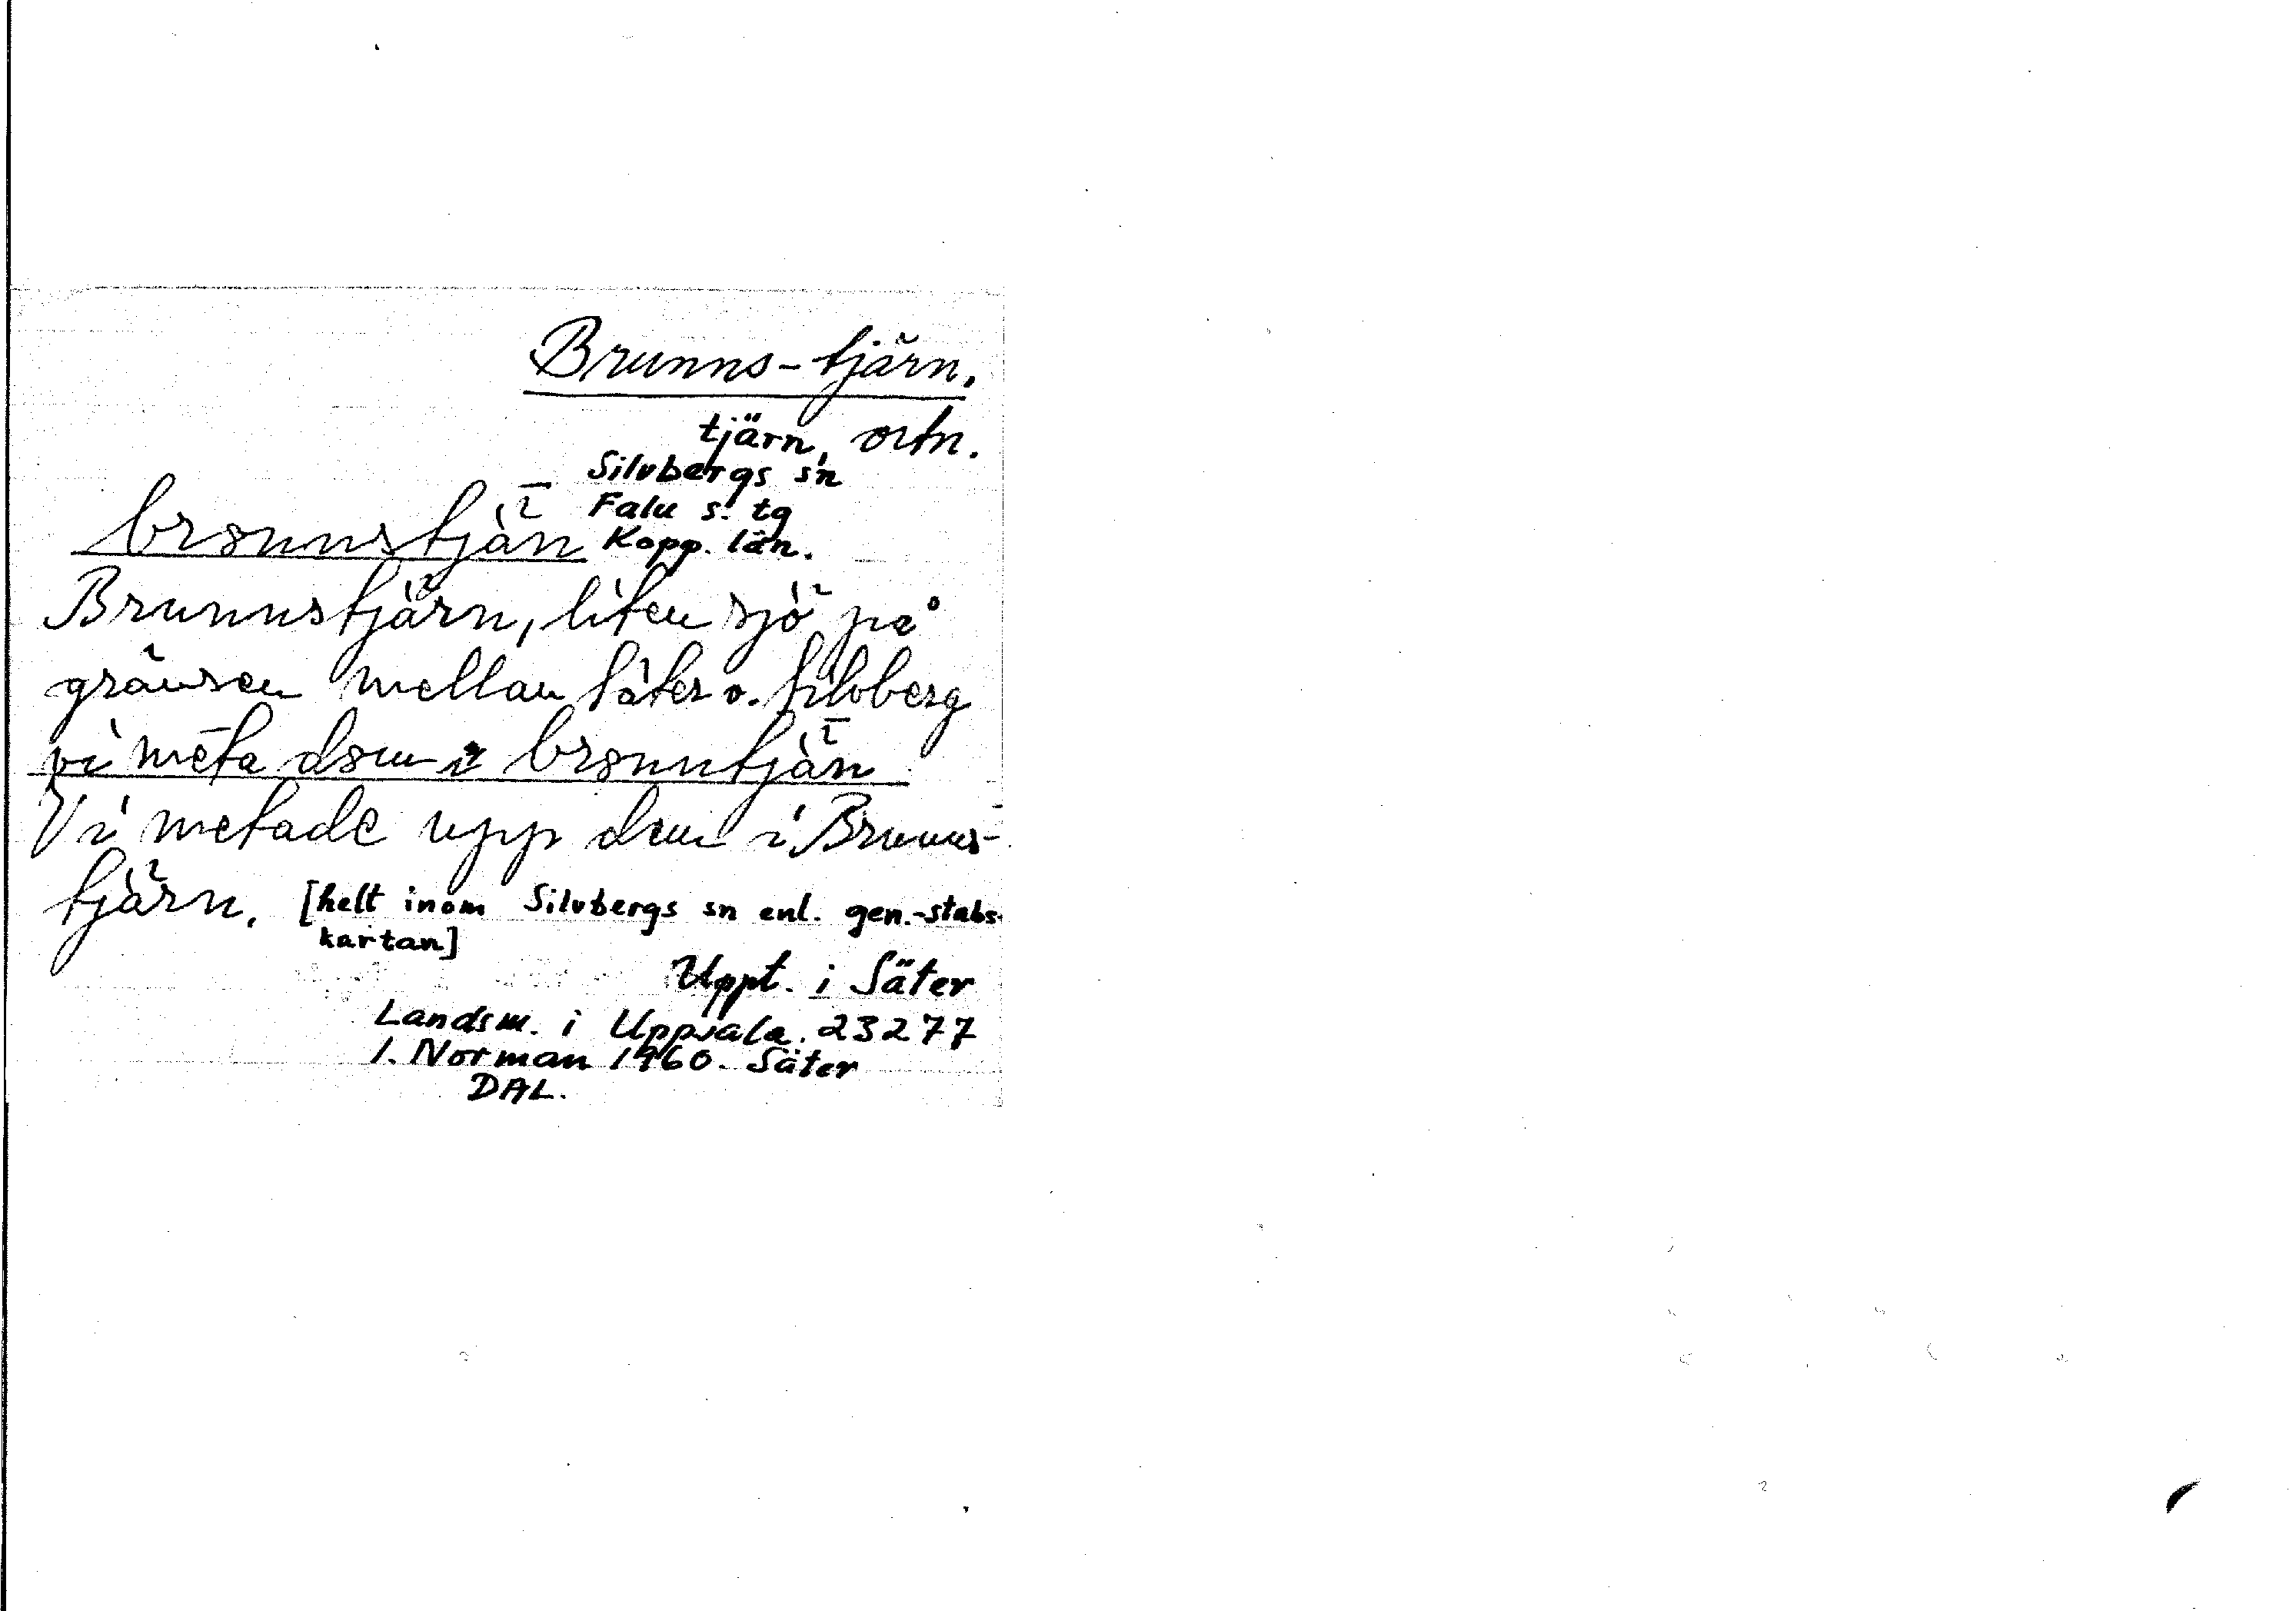 Brunns-tjärn.
tjärn, ortn.
Silvbergs sn
Falu s. tg
Kopp. län.
brønnstjän
Brunnstjärn, liten sjö på
gränsen mellan Säter o. Silvberg
vi mēta døm i brønntjän
Vi metade upp dem i Brunns-
tjärn. [helt inom Silvbergs sn enl. gen.-stabs-
kartan]
Uppt. i Säter
Landsm. i Uppsala. 23277
I. Norman 1960. Säter
DAL.